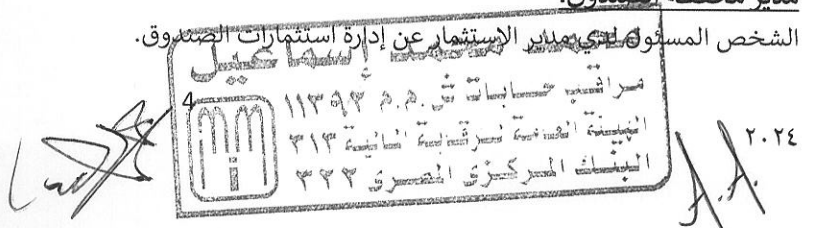 مدير محفظة الصندوق:
الشخص المسئول لدي مدير الاستثمار عن إدارة استثمارات الصندوق.
محمد إسماعيل
مراقب حسابات ش.م.م ١١٣٩٣
الهيئة العامة للرقابة المالية ٣١٣
البنك المركزى المصرى ٣٢٢
4
٢٠٢٤
A.A.